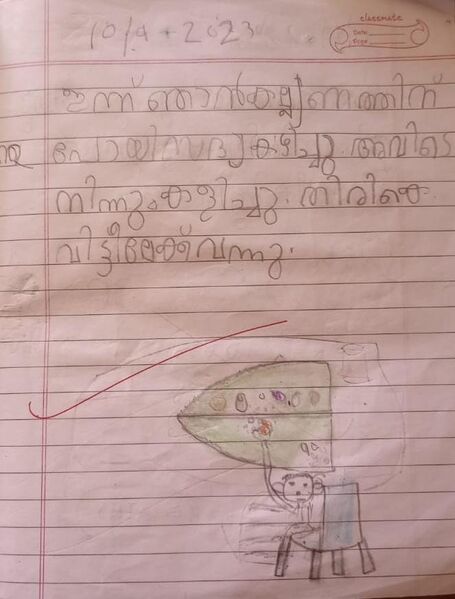 10/9-2023
classmate
Date
Page
ഇന്ന് ഞാൻ കല്യണത്തിന്
പോയി സദ്യ കഴിച്ചു. അവിടെ
നിന്നും കളിച്ചു. തിരികെ
വിട്ടീലേക്ക് വന്നു.